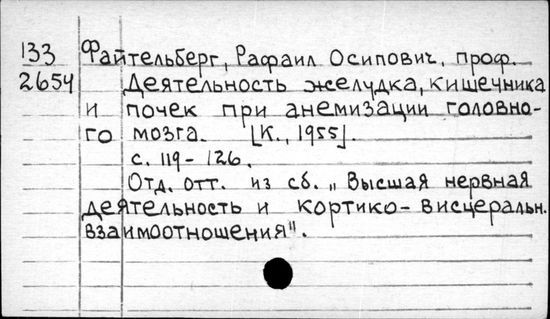 133 Файтельберг, Рафаил Осипович, проф.
2654 Деятельность желудка, кишечника
и почек при анемизации головно-
го мозга. [К., 1955].
с. 119-126.
Отд. отт. из сб. „Высшая нервная
деятельность и кортико-висцеральн.
взаимоотношения".